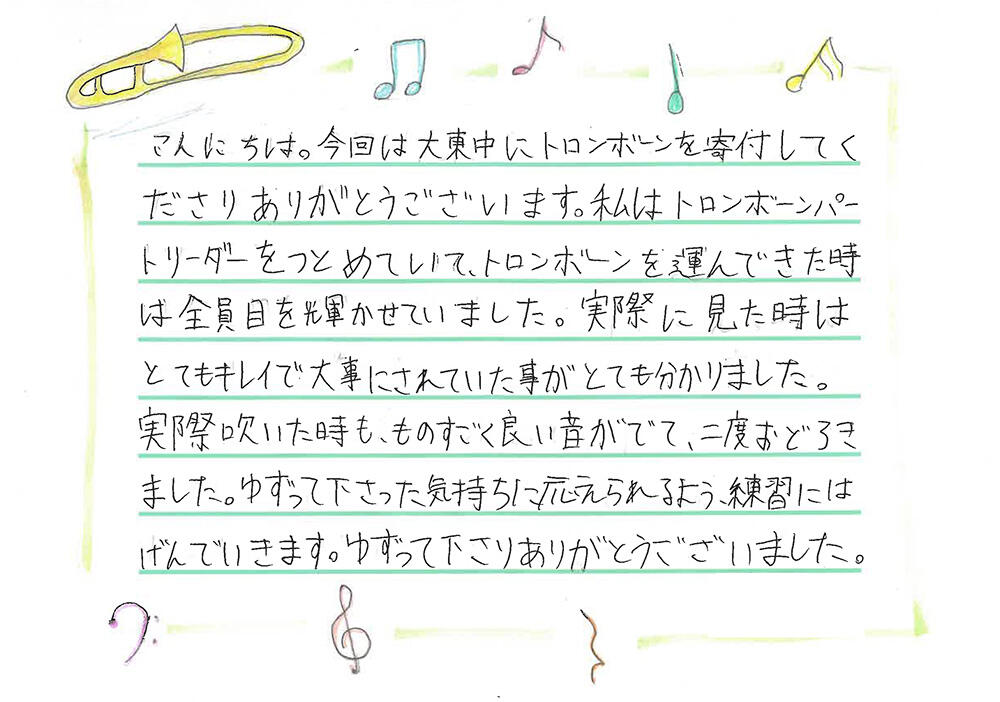 こんにちは。今回は大東中にトロンボーンを寄付してく
ださりありがとうございます。私はトロンボーンパー
トリーダーをつとめていて、トロンボーンを運んできた時
は全員目を輝かせていました。実際に見た時は
とてもキレイで大事にされていた事がとても分かりました。
実際吹いた時も、ものすごく良い音がでて、二度おどろき
ました。ゆずって下さった気持ちに応えられるよう、練習には
げんでいきます。ゆずって下さりありがとうございました。